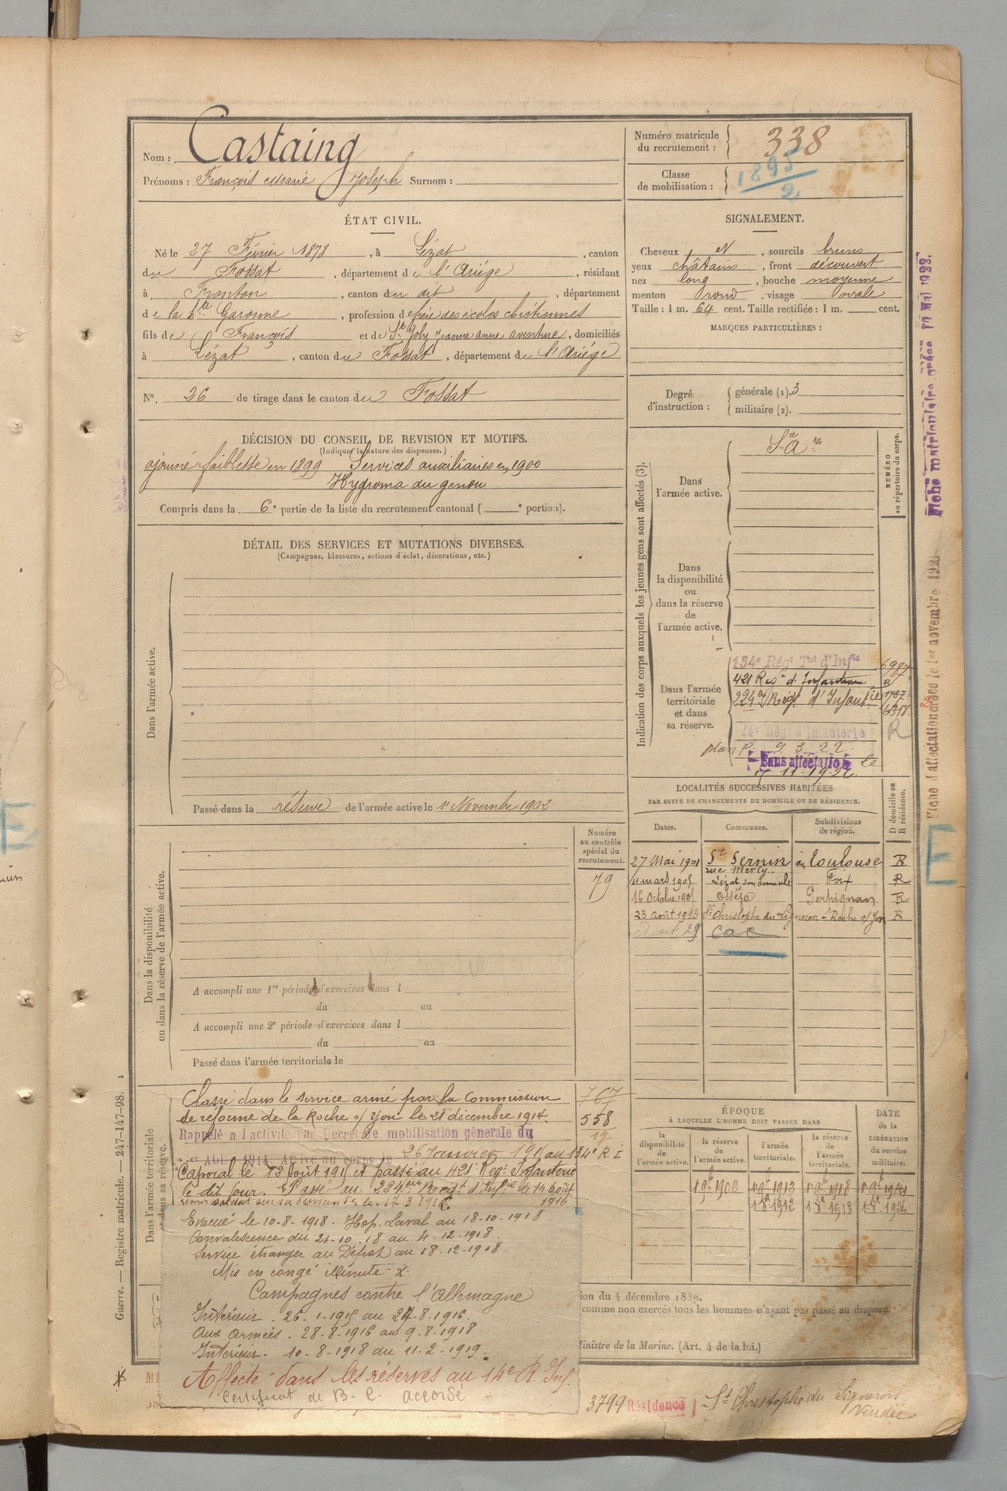 Nom : Castaing
Prénoms : François Marie Joseph Surnom :
Numéro matricule du recrutement : 338
Classe de mobilisation : 1895 / 2
ÉTAT CIVIL.
Né le 27 Février 1878, à Lézat, canton
du Fossat, département de l'Ariége, résidant
à Fronton, canton du dit, département
de la Hte Garonne, profession d
des écoles chrétiennes
fils de François et de Jeanne, domiciliés
à Lézat, canton du Fossat, département de l'Ariége
N° 26 de tirage dans le canton du Fossat
SIGNALEMENT.
Cheveux et N, sourcils bruns
yeux châtains, front découvert
nez long, bouche moyenne
menton rond, visage ovale
Taille : 1 m. 64 cent. Taille rectifiée : 1 m. cent.
MARQUES PARTICULIÈRES :
Degré d'instruction : générale (1). 3
militaire (2).
DÉCISION DU CONSEIL DE REVISION ET MOTIFS.
(Indiquer la nature des dispenses.)
ajourné faiblesse en 1899 Services auxiliaires en 1900
Hygroma du genou
Compris dans la 6e partie de la liste du recrutement cantonal ( e portion).
DÉTAIL DES SERVICES ET MUTATIONS DIVERSES.
(Campagnes, blessures, actions d'éclat, décorations, etc.)
Dans l'armée active.
Passé dans la réserve de l'armée active le 1er Novembre 1902
Indication des corps auxquels les jeunes gens sont affectés (3).
NUMÉRO au répertoire du corps.
Dans l'armée active.
Dans la disponibilité ou dans la réserve de l'armée active.
Dans l'armée territoriale et dans sa réserve.
134e Régt Tal d'Infie
421 Régt d'Infanterie
224 Régt d'Infanterie
14e Régt d'Infanterie
plan P. 9.3.22
Sans affectation le
Fiche matriculaire créée 10 Mai 1922.
LOCALITÉS SUCCESSIVES HABITÉES
PAR SUITE DE CHANGEMENTS DE DOMICILE OU DE RÉSIDENCE.
Dates. Communes. Subdivisions de région. D domicile ou R résidence.
27 Mai 1901 St Sernin à Toulouse R
4 mars 1905 Lézat son domicile Foix R
16 Octobre 1905 Osséja Perpignan R
23 août 1913 St Christophe du Ligneron - Roche s/ Yon R
E
Dans la disponibilité ou dans la réserve de l'armée active.
Numéro au contrôle spécial du recrutement.
79
A accompli une 1re période d'exercices dans l
du au
A accompli une 2e période d'exercices dans l
du au
Passé dans l'armée territoriale le
Dans l'armée territoriale et dans sa réserve.
Classé dans le service armé par la Commission 767
de réforme de la Roche s/ Yon le 28 décembre 1914 558
Rappelé à l'activité par Décret de mobilisation générale du
1er Août 1914. Arrivé au corps le 26 Janvier 1915 au 134e R I
Caporal le 13 Août 1915 et passé au 421 Régt d'Infanterie
le dit jour. Passé au 224me Régt d'Infie le 14 août 1916
Evacué le 10-8-1918. Hop. Laval au 18-10-1918
Convalescence du 21-10-18 au 4-12-1918
Service étranger au Dépôt au 18-12-1918
Mis en congé illimité
Campagnes contre l'Allemagne
Intérieur. 26-1-1915 au 27-8-1916
Aux Armées. 28-8-1916 au 9-8-1918
Intérieur. 10-8-1918 du 11-2-1919.
Affecté dans les réserves au 14e R. Inf.
Certificat de B. C. accordé
ÉPOQUE
À LAQUELLE L'HOMME DOIT PASSER DANS
la disponibilité de l'armée active. la réserve de l'armée active. l'armée territoriale. la réserve de l'armée territoriale.
DATE de la LIBÉRATION du service militaire.
ion du 4 décembre 1889.
comme non exercés tous les hommes n'ayant pas passé au drapeau.
Ministre de la Marine. (Art. 4 de la loi.)
3799 Résidence St Christophe du Ligneron
Vendée
Guerre. — Registre matricule. — 247-147-98.